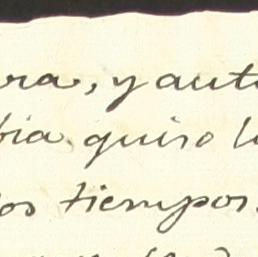 ra, y auto
bia quiso l
los tiempos.